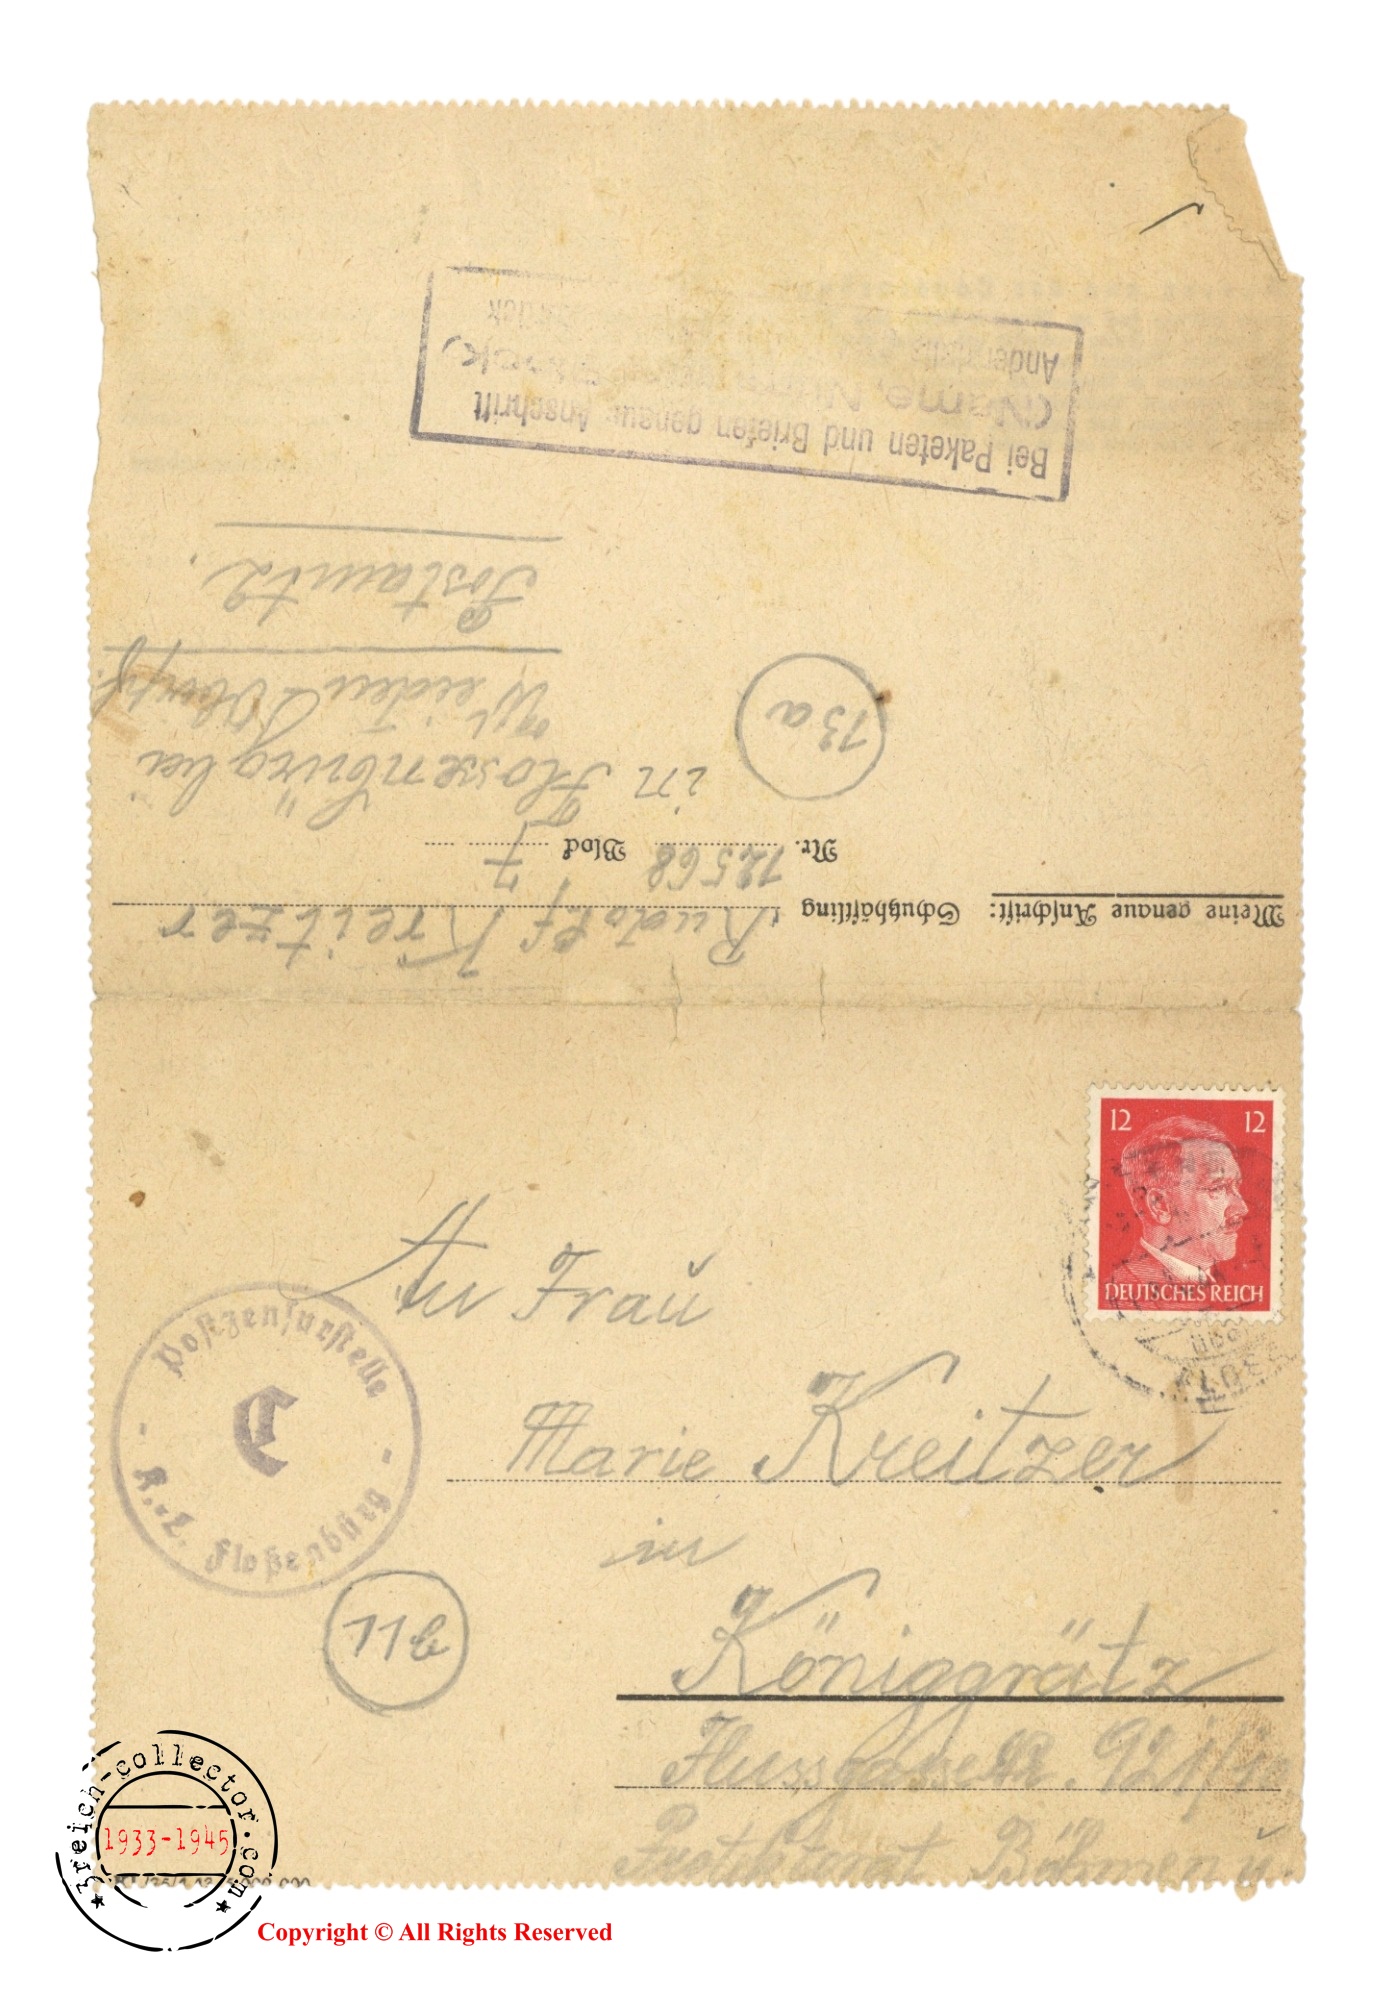 Bei Paketen und Briefen genaue Anschrift
(Name, Block)
Meine genaue Anschrift: Schutzhäftling Rudolf Kreitzer
Nr. 12568 Block 7
in Flossenbürg bei
Weiden Oberpf.
Postamt 2.
13a
12 12
DEUTSCHES REICH
An Frau
Marie Kreitzer
in
Königgrätz
921/
Protektorat Böhmen u.
Postzensurstelle
C
K.-L. Floßenbürg
11b
3reich-collector.com
1933-1945
Copyright © All Rights Reserved